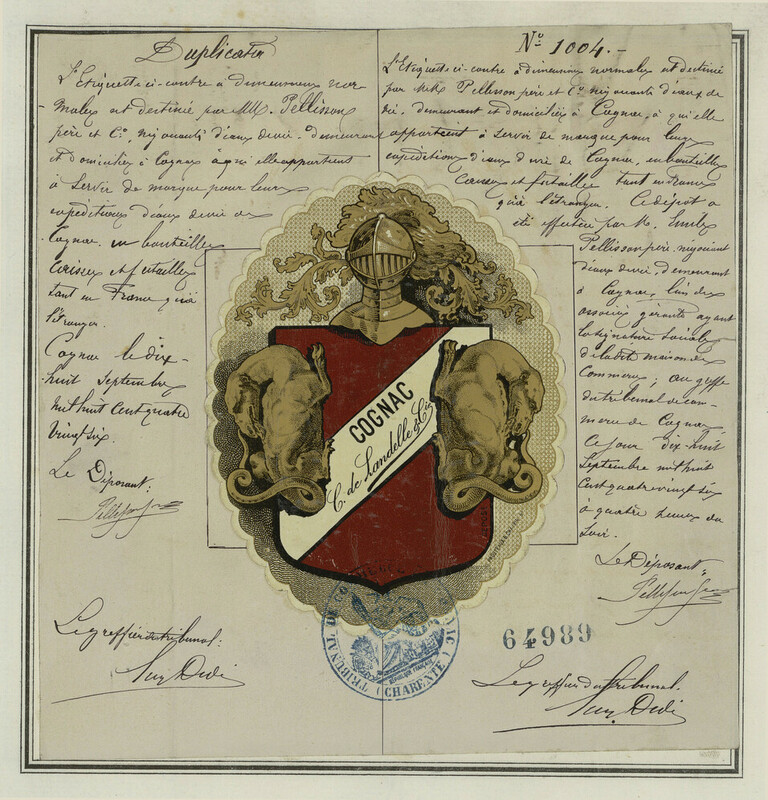 Duplicata
L'Etiquette ci-contre à dimensions nor-
males est destinée par MM. Pellisson
père et Cie, négociants d'eaux-de-vie, demeurant
et domiciliés à Cognac à qui elle appartient
à servir de marque pour leurs
expéditions d'eaux-de-vie de
Cognac en bouteilles
caisses et futailles
tant en France qu'à
l'étranger.
Cognac le dix-
huit Septembre
mil huit cent quatre
vingt six.
Le Déposant:
Pellisson père
Le greffier du tribunal:
No 1004.-
L'Etiquette ci-contre à dimensions normales est destinée
par MM. Pellisson père et Cie négociants d'eaux de
vie, demeurant et domiciliés à Cognac, à qui elle
appartient à servir de marque pour leurs
expéditions d'eaux-d'vie de Cognac, en bouteilles
Caisses et futailles tant en France
qu'à l'étranger. Ce dépôt a
été effectué par M. Emile
Pellisson père, négociant
d'eaux-de-vie, demeurant
à Cognac, l'un des
associés gérants ayant
la signature sociale
de la dite maison de
Commerce, au greffe
du tribunal de com-
merce de Cognac
Ce jour dix-huit
Septembre mil huit
cent quatre vingt six
à quatre heures du
soir.
Le Déposant:
Pellisson père
64989
Le greffier du tribunal.
COGNAC
C. de Landelle & Cie
TRIBUNAL DE
(CHARENTE)
RÉPUBLIQUE FRANÇAISE